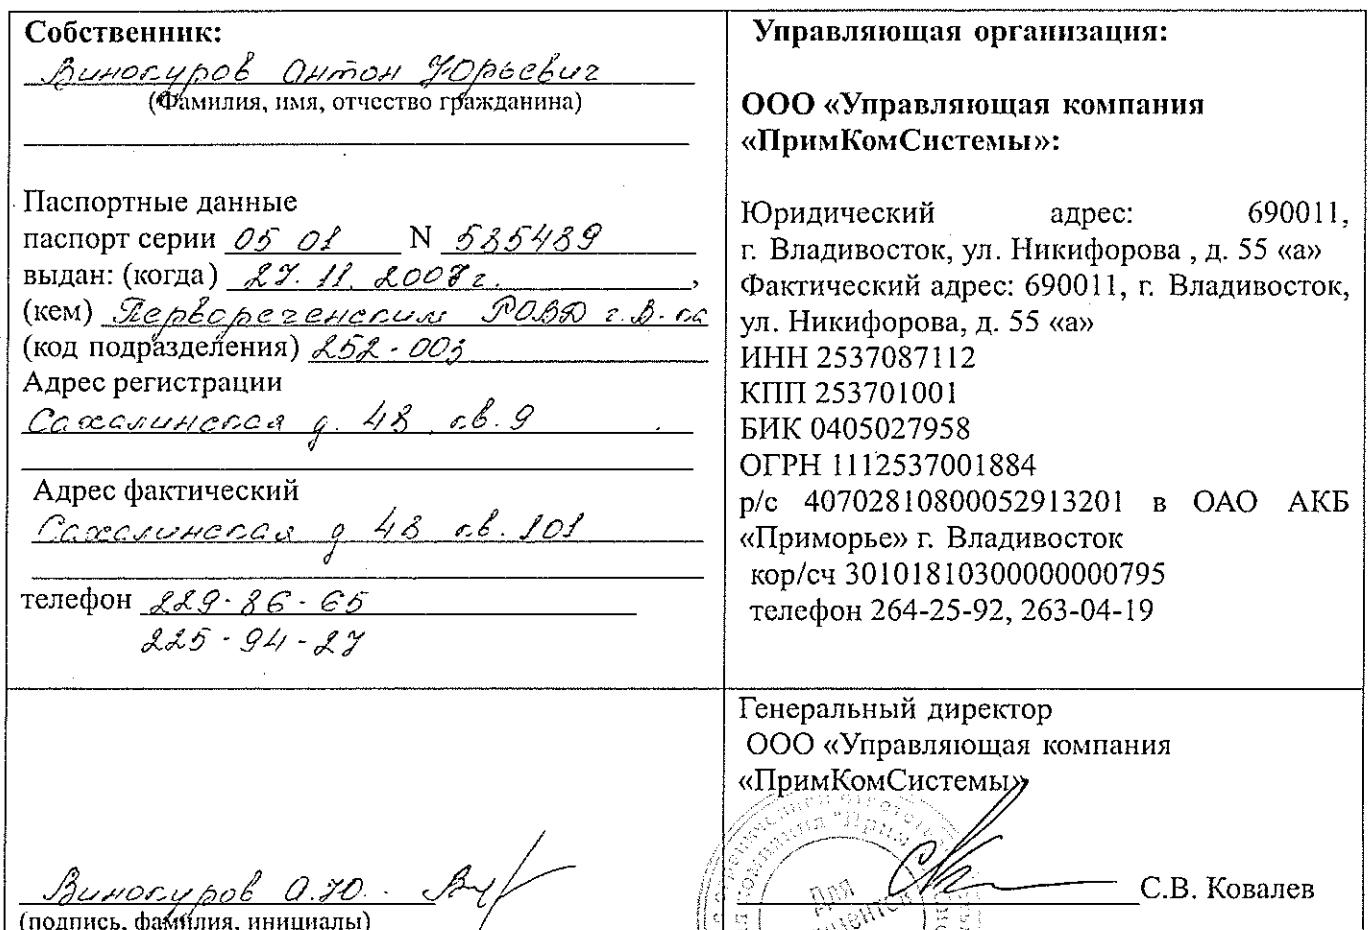 Собственник:
Винокуров Антон Юрьевич
(Фамилия, имя, отчество гражданина)
Паспортные данные
паспорт серии 05 01 N 585489
выдан: (когда) 27.11.2007г.,
(кем) Первореченским РОВД г.В-ка
(код подразделения) 252-003
Адрес регистрации
Сахалинская д. 48 кв. 9
Адрес фактический
Сахалинская д 48 кв. 101
телефон 229-86-65
225-94-27
Винокуров А.Ю.
(подпись, фамилия, инициалы)
Управляющая организация:
ООО «Управляющая компания
«ПримКомСистемы»:
Юридический адрес: 690011,
г. Владивосток, ул. Никифорова , д. 55 «а»
Фактический адрес: 690011, г. Владивосток,
ул. Никифорова, д. 55 «а»
ИНН 2537087112
КПП 253701001
БИК 0405027958
ОГРН 1112537001884
р/с 40702810800052913201 в ОАО АКБ
«Приморье» г. Владивосток
кор/сч 30101810300000000795
телефон 264-25-92, 263-04-19
Генеральный директор
ООО «Управляющая компания
«ПримКомСистемы»
Для
С.В. Ковалев